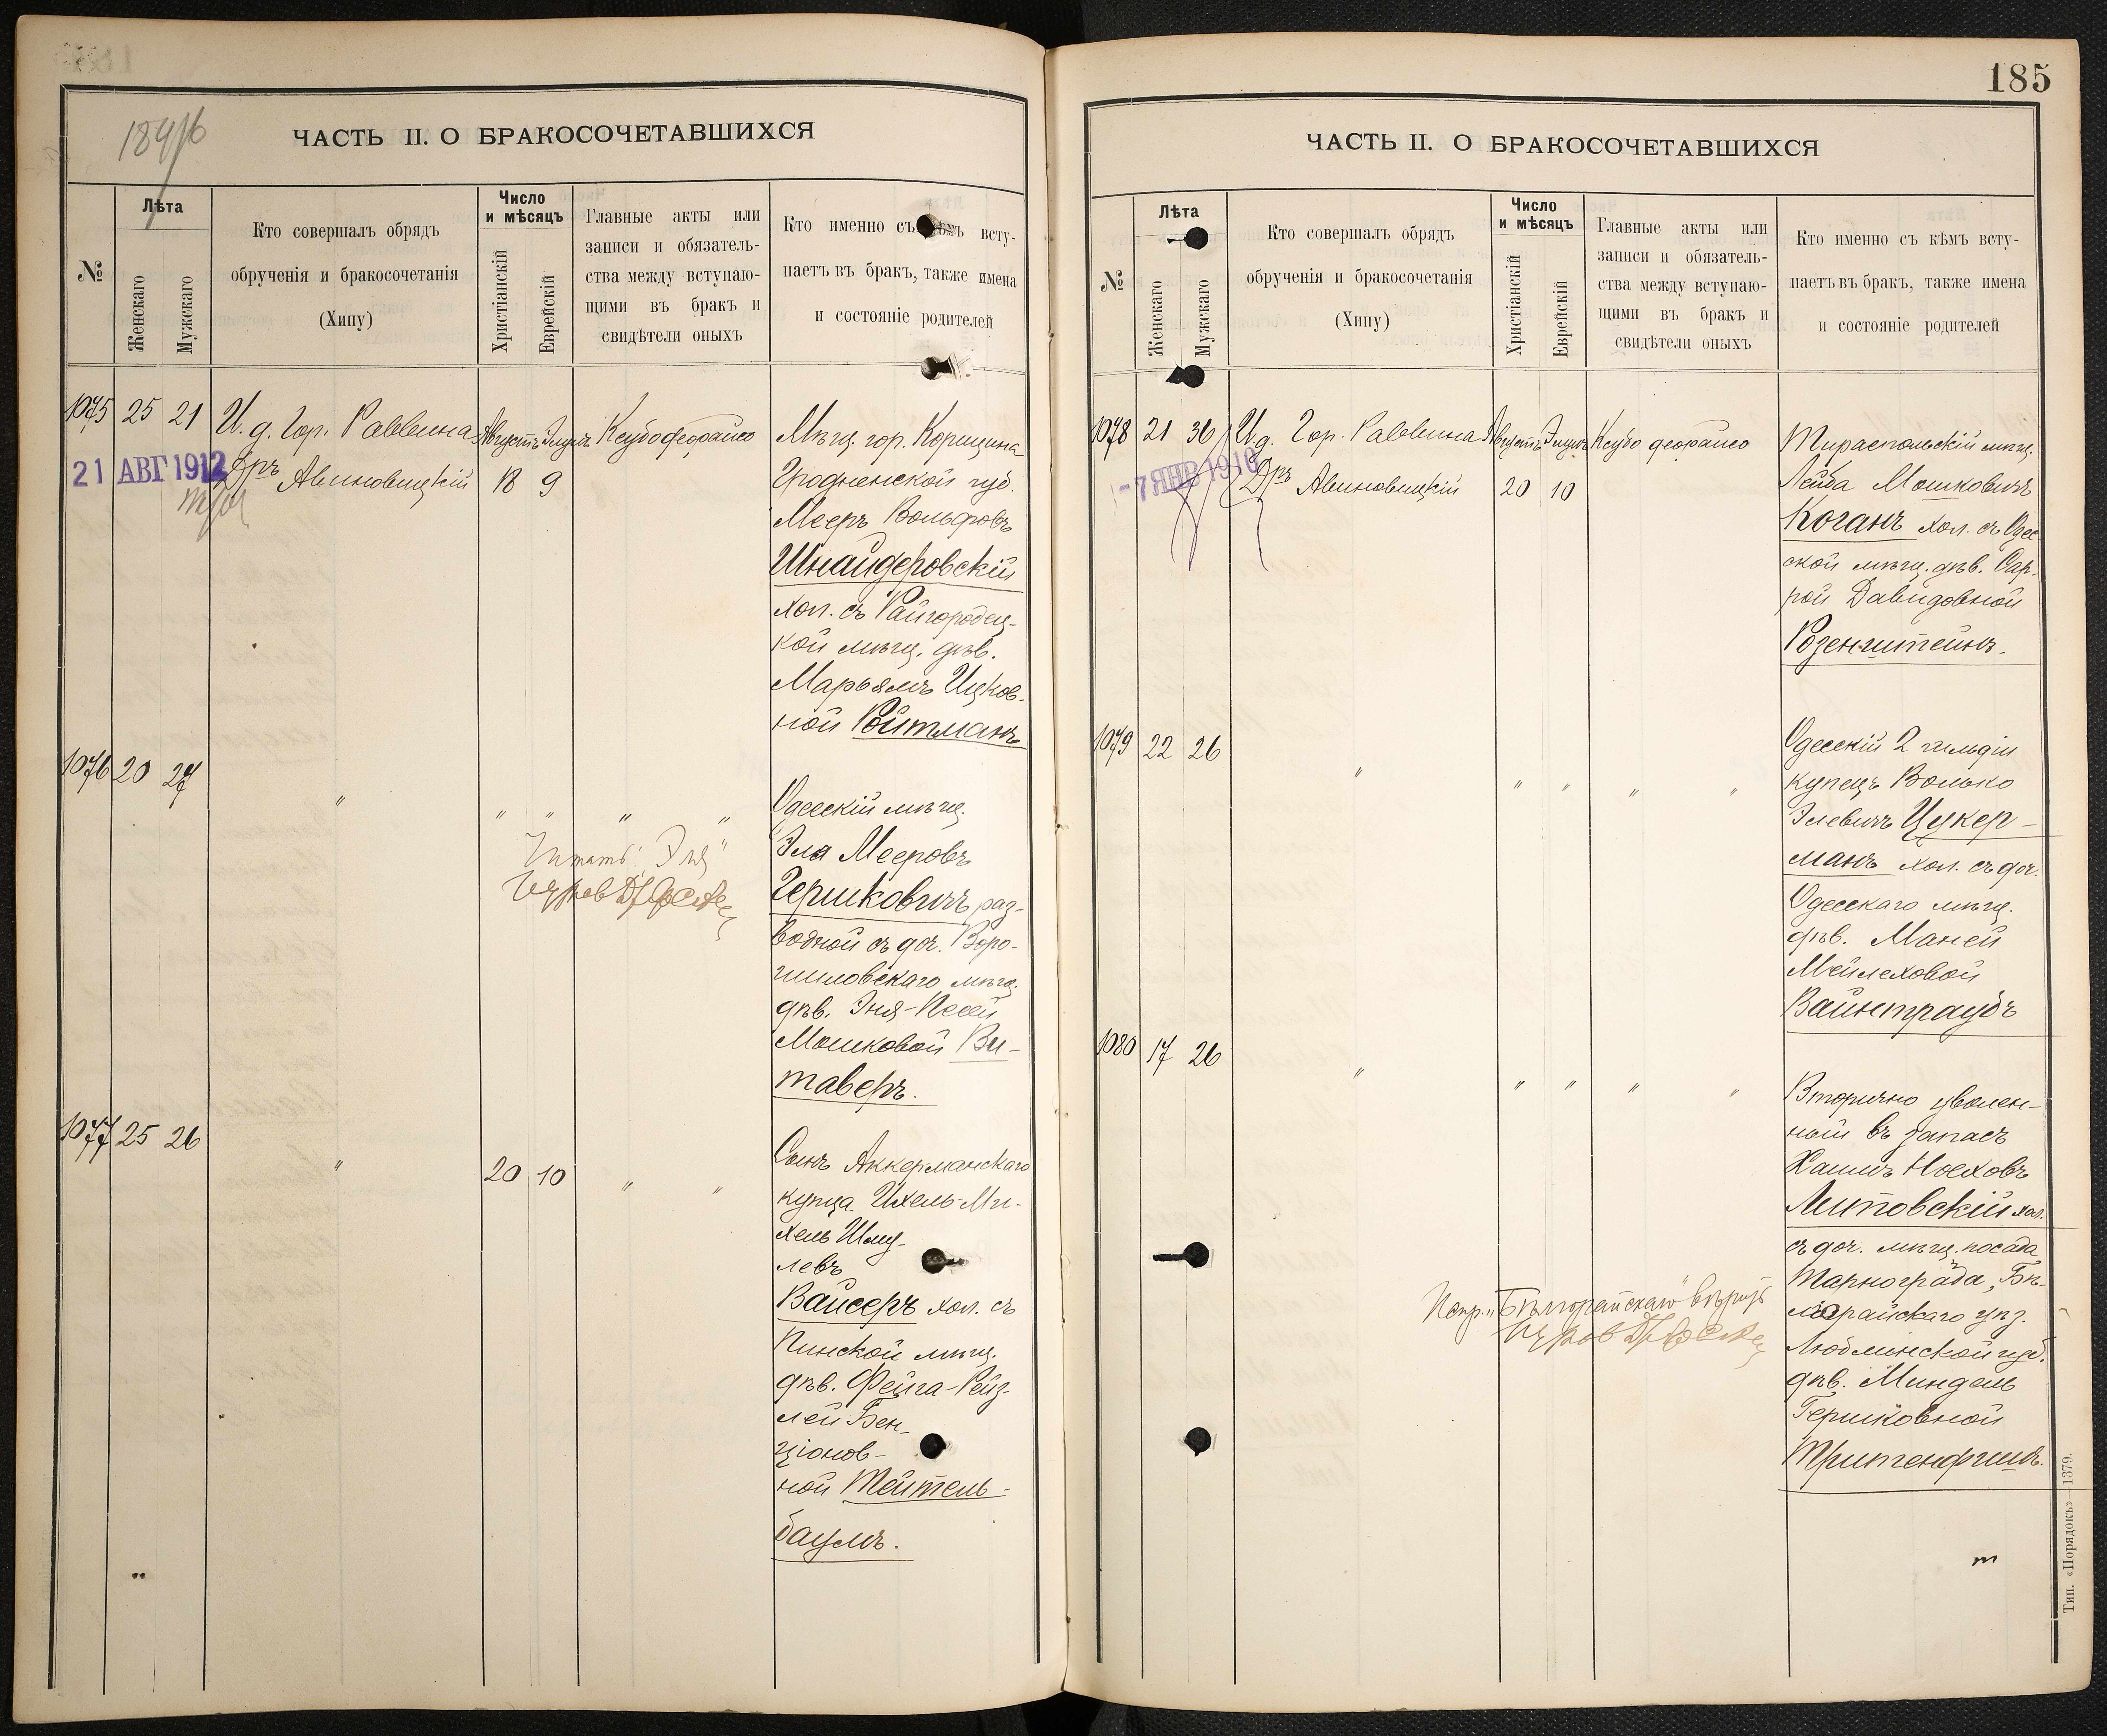 184/6
ЧАСТЬ II. О БРАКОСОЧЕТАВШИХСЯ
№
Лѣта
Женскаго
Мужскаго
Кто совершалъ обрядъ
обрученія и бракосочетанія
(Хипу)
Число
и мѣсяцъ
Христіанскій
Еврейскій
Главные акты или
записи и обязатель-
ства между вступаю-
щими въ бракъ и
свидѣтели оныхъ
Кто именно съ кѣмъ всту-
паетъ въ бракъ, также имена
и состояніе родителей
1075 25 21 И. д. Гор. Раввина Августъ Элулъ Ксубо деорайсо
21 АВГ 1912
Дръ Авиновицкій 18 9
Мѣщ. гор. Корицина
Гродненской губ.
Мееръ Вольфовъ
Шнайдеровскій
хол. съ Райгородец-
кой мѣщ. дѣв.
Марьямъ Ицков-
ной Ройтманъ
1076 20 27 " " " " "
Одесскій мѣщ.
Эля Мееровъ
Гершковичъ раз-
водной съ доч. Воро-
шиловскаго мѣщ.
дѣв. Эня-Песей
Мошковой Ви-
таверъ.
Читать: "Эля"
1077 25 26 " 20 10 " "
Сынъ Аккерманскаго
купца Ихель-Ми-
хель Шму-
левъ
Вайсеръ хол. съ
Пинской мѣщ.
дѣв. Фейга-Рейз-
лей Бен-
ціонов-
ной Тейтель-
баумъ.
185
ЧАСТЬ II. О БРАКОСОЧЕТАВШИХСЯ
№
Лѣта
Женскаго
Мужскаго
Кто совершалъ обрядъ
обрученія и бракосочетанія
(Хипу)
Число
и мѣсяцъ
Христіанскій
Еврейскій
Главные акты или
записи и обязатель-
ства между вступаю-
щими въ бракъ и
свидѣтели оныхъ
Кто именно съ кѣмъ всту-
паетъ въ бракъ, также имена
и состояніе родителей
1078 21 36 И. д. Гор. Раввина Августъ Элулъ Ксубо деорайсо
-7 ЯНВ 1910
Дръ Авиновицкій 20 10
Тираспольскій мѣщ.
Лейба Мошковичъ
Коганъ хол. съ Одес
ской мѣщ. дѣв. Сар-
рой Давидовной
Розенштейнъ.
1079 22 26 " " " " "
Одесскій 2 гильдіи
купецъ Волько
Элевичъ Цукер-
манъ хол. съ доч.
Одесскаго мѣщ.
дѣв. Маней
Мейлеховой
Вайнтраубъ
1080 17 26 " " " " "
Вторично уволен-
ный въ запасъ
Хаимъ Ноеховъ
Литовскій хол.
съ доч. мѣщ. посада
Тарнограда, Бѣ-
лгорайскаго уѣз.
Люблинской губ.
дѣв. Миндель
Гершковной
Тритенфишъ.
Попр. "Бѣлгорайскаго" вѣрить
Тип. «Порядокъ»—1379.